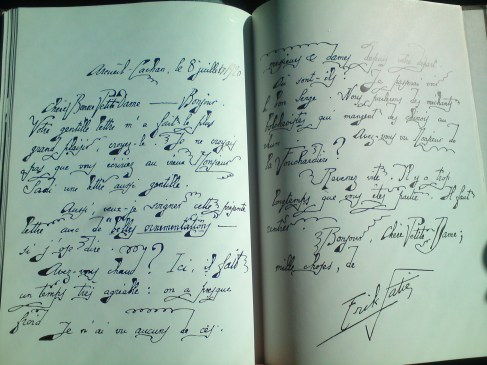 Arcueil-Cachan, le 8 juillet 1920
Chère Bonne Petite Dame — Bonjour.
Votre gentille lettre m'a fait le plus
grand plaisir, croyez-le. Je ne croyais
pas que vous écririez au vieux Monsieur
Sadi une lettre aussi gentille.
Aussi, veux-je soigner cette présente
lettre avec de belles ornementations —
si j'ose dire.
Avez-vous chaud ? Ici, il fait
un temps très agréable : on a presque
froid
Je n'ai vu aucuns de ces
messieurs & dames depuis votre départ
Où sont-ils ?
le bon Serge. Nous
qui mangent
Avez-vous
la Fouchardière ?
Revenez vite. Il y a trop
longtemps que vous êtes partie. Il faut
rentrer.
Bonjour, Chère Petite Dame ;
mille choses, de
Erik Satie